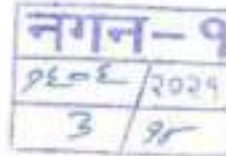 नगन-१
१६०६ / २०२१
३ / १८